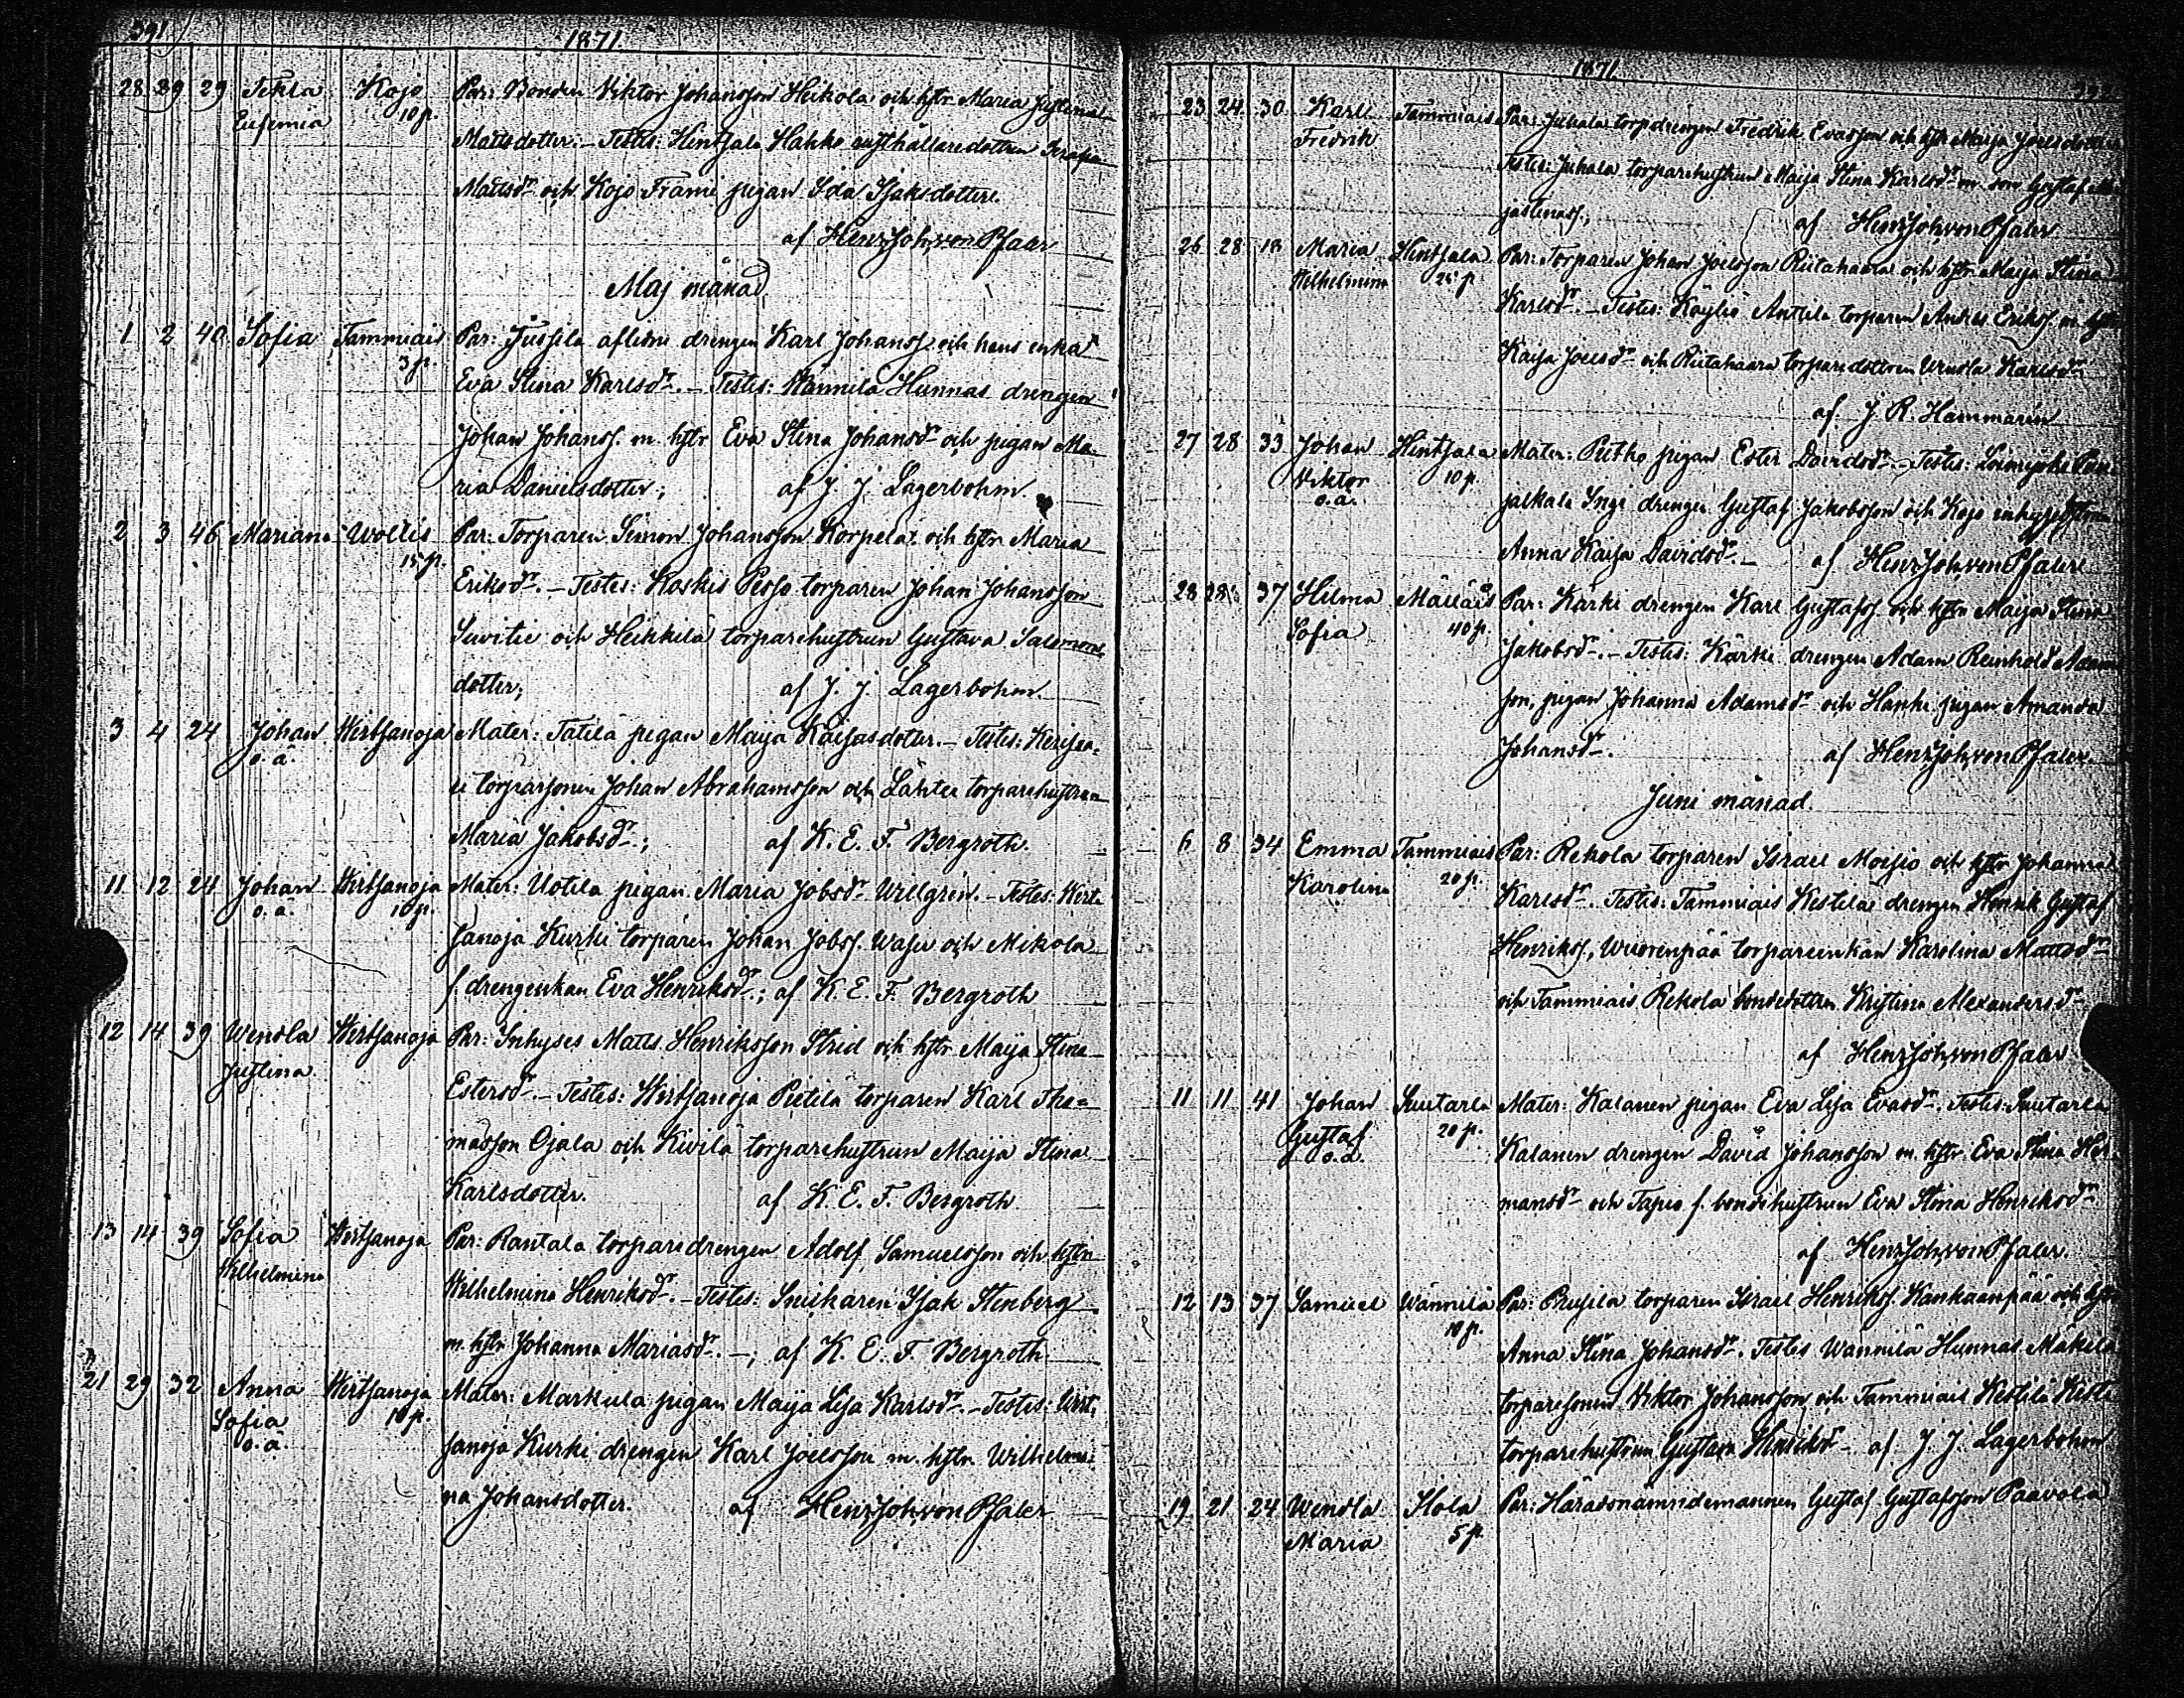 391
1871.
28 29 29 Tekla Kojo Par: Bonden Viktor Johansson Heikola och hstr Maria Justina
Eufemia 10 p. Mattsdotter. – Testes: Hintsala Hakko rusthållaredottren
Mattsdr och Kojo Frami pigan Ida Isaksdotter.
af Henr. Joh. von Pfaler
Maj månad
1 2 40 Sofia Tammiais Par: Jussila aflidne drengen Karl Johanss. och hans enka
3 p. Eva Stina Karlsdr. – Testes: Wännilä Hunnas drengen
Johan Johanss. m. hstr Eva Stina Johansdr och pigan Ma-
ria Danielsdotter; af J. J. Lagerbohm.
2 3 46 Mariana Wollis Par: Torparen Simon Johansson Korpela och hstr Maria
15 p. Eriksdr. – Testes: Koskis Pesso torparen Johan Johansson
Suvitie och Heikkilä torparehustrun Gustava Salomons-
dotter; af J. J. Lagerbohm.
3 4 24 Johan Wirtsanoja Mater: Tätilä pigan Maija Kaisasdotter. – Testes:
o. ä. torparsonen Johan Abrahamsson och Lähtee torparehustrun
Maria Jakobsdr.; af K. E. F. Bergroth.
11 12 24 Johan Wirtsanoja Mater: Uotila pigan Maria Jobsdr Willgrén. – Testes: Wirt-
o. ä. 10 p. sanoja Kurki torparen Johan Jobss. Wasu och Mikola
f. drengenkan Eva Henriksdr.; af K. E. F. Bergroth
12 14 39 Wendla Wirtsanoja Par: Inhyses Matts Henriksson Strid och hstr Maija Stina
Justina Estersdr. – Testes: Wirtsanoja Pietilä torparen Karl Tho-
masson Ojala och Kivilä torparehustrun Maija Stina
Karlsdotter. af K. E. F. Bergroth
13 14 39 Sofia Wirtsanoja Par: Rantala torparedrengen Adolf Samuelsson och hstr
Wilhelmina Wilhelmina Henriksdr. – Testes: Snickaren Isak Stenberg
m. hstr Johanna Mariasdr. –; af K. E. F. Bergroth
21 29 32 Anna Wirtsanoja Mater: Markula pigan Maija Lisa Karlsdr. – Testes: Wirt-
Sofia 10 p. sanoja Kurki drengen Karl Joelsson m. hstr Wilhelmi-
o. ä. na Johansdotter. af Henr. Joh. von Pfaler
1871
392
23 24 30 Karl Tammiais Par: Juhala torpdrengen Fredrik Evasson och hstr Maija Joelsdotter
Fredrik Testes: Juhala torparehustrun Maija Stina Karlsdr m. son Gustaf Ma-
jastinass.; af Henr. Joh. von Pfaler
26 28 18 Maria Hintsala Par: Torparen Johan Joelsson Riitahaara och hstr Maija Stina
Wilhelmina 25 p. Karlsdr. – Testes: Köyliö Anttila torparen Anders Erikss. m. hstr
Kaisa Joelsdr och Riitahaara torparedottren Wendla Karlsdr
af J. R. Hammarén
27 28 33 Johan Hintsala Mater: Pietho pigan Ester Davidsdr. – Testes: Loimijoki
Viktor 10 p. Yngi drengen Gustaf Jakobsson och Kojo inhyseshstrun
o. ä. Anna Kaisa Davidsdr. – af Henr. Joh. von Pfaler
28 28 37 Hilma Mälläis Par: Kärki drengen Karl Gustafss. och hstr Maija Stina
Sofia 40 p. Jakobsdr. – Testes: Kärki drengen Adam Reinhold Adams-
son, pigan Johanna Adamsdr och Hanki pigan Amanda
Johansdr. af Henr. Joh. von Pfaler.
Juni månad.
6 8 34 Emma Tammiais Par: Rekola torparen Israel Moisio och hstr Johanna
Karolina 20 p. Karlsdr. Testes: Tammiais Kestilä drengen Henrik Gustaf
Henrikss., Wuorenpää torpareenkan Karolina Mattsdr
och Tammiais Rekola bondedottren Kristina Alexandersdr
af Henr. Joh. von Pfaler
11 11 41 Johan Suutarla Mater: Kalanen pigan Eva Lisa Evasdr. Testes: Suutarla
Gustaf 20 p. Kalanen drengen David Johansson m. hstr Eva Stina Her-
o. ä. mansdr och Tapio f. bondehustrun Eva Stina Henriksdr
af Henr. Joh. von Pfaler.
12 13 37 Samuel Wännilä Par: Prusila torparen Israel Henrikss. Kankaanpää och hstr
10 p. Anna Stina Johansdr. Testes Wännilä Hunnas Mäkelä
torparesonen Viktor Johansson och Tammiais Kestilä
torparehustrun Gustava Henriksdr – af J. J. Lagerbohm
19 21 24 Wendla Hola Par: Häradsnämndemannen Gustaf Gustafsson Paavola
Maria 5 p.